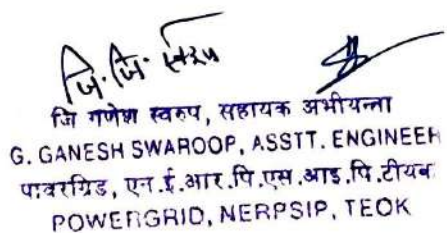 जि. जि. स्वरुप
जि गणेश स्वरुप, सहायक अभीयन्ता
G. GANESH SWAROOP, ASSTT. ENGINEER
पावरग्रिड, एन.ई.आर.पि.एस.आइ.पि.टीयक
POWERGRID, NERPSIP, TEOK